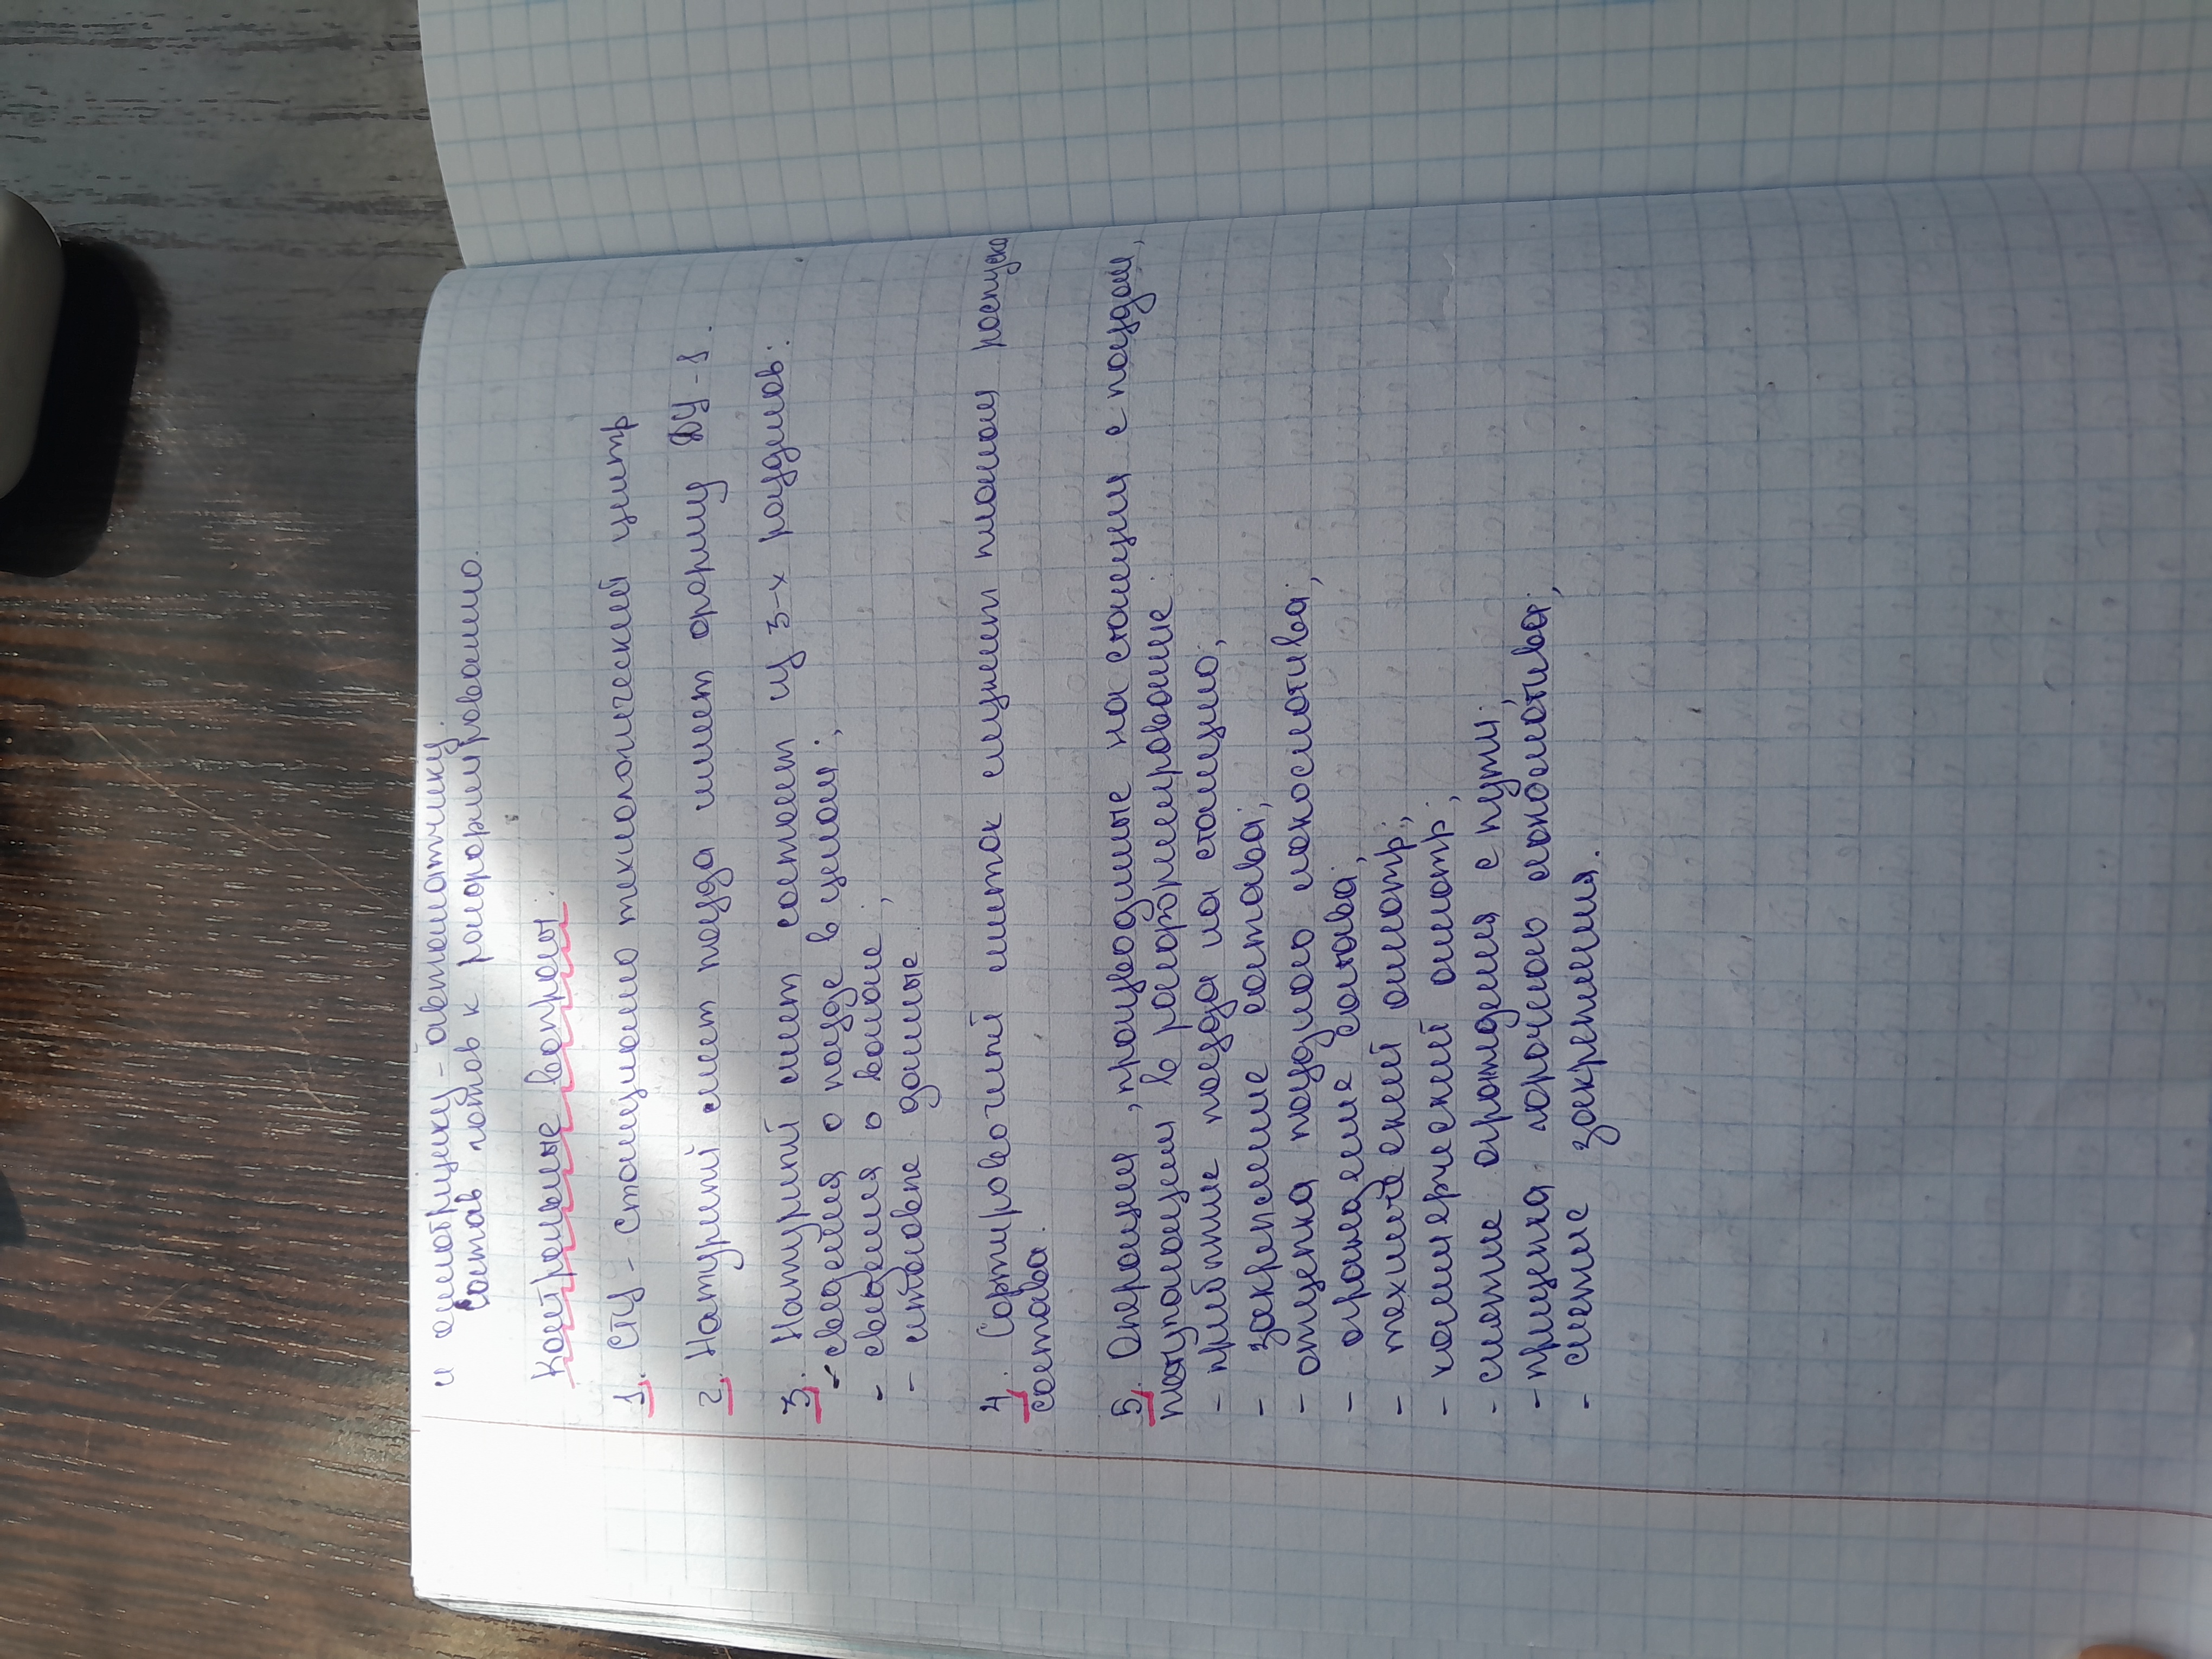 и осмотрщику - автоматчику
Состав готов к расформированию.
Контрольные вопросы:
1. СТЦ - Станционно технологический центр
2. Натурный лист поезда имеет форму ДУ-1.
3. Натурный лист состоит из 3-х разделов:
- сведения о поезде в целом;
- сведения о вагоне;
- итоговые данные
4. Сортировочный листок служит планом роспуска
состава.
5. Операции, производимые на станции с поездом,
поступающем в расформирование:
- прибытие поезда на станцию;
- закрепление состава;
- отцепка поездного локомотива;
- ограждение состава;
- технический осмотр;
- коммерческий осмотр;
- снятие ограждения с пути;
- прицепка горочного локомотива;
- снятие закрепления.